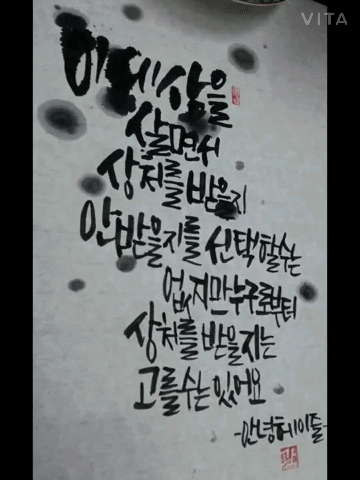 VITA
이 세 삶을
살면서
상처를 받을지
안받을지를 선택할수는
없지만 누구로부터
상처를 받을지는
고를수는 있어요
-안녕헤이즐-